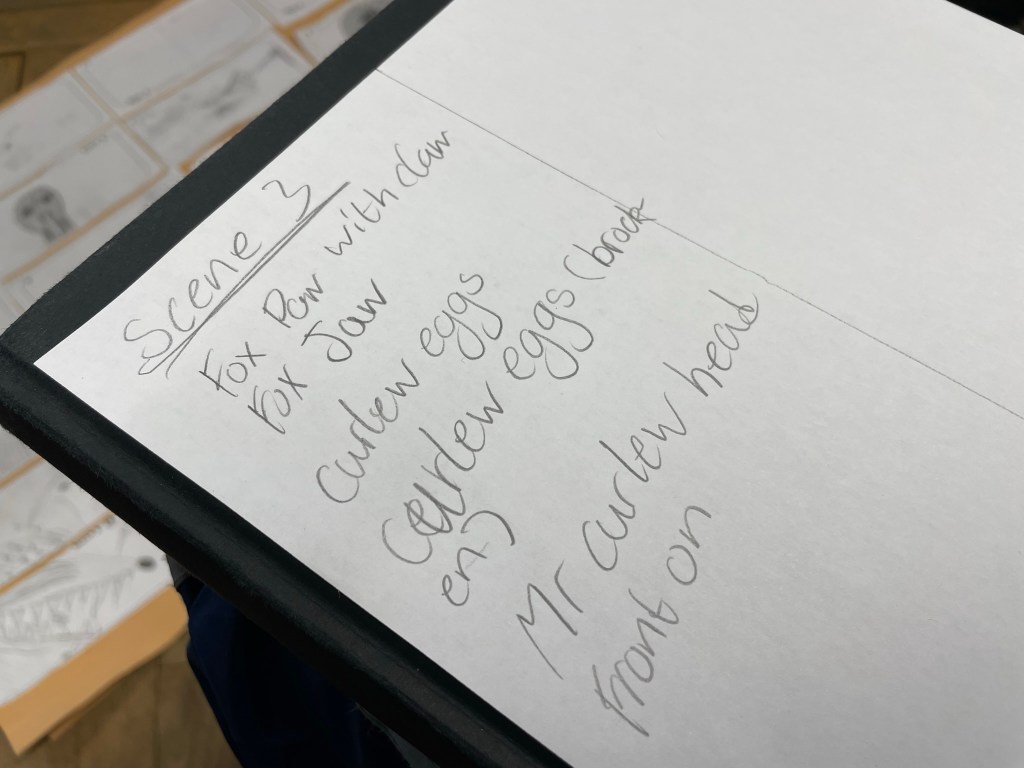 Scene 3
Fox Paw with claw
Fox Jaw
Curlew eggs
Curlew eggs (brock
en)
Mr curlew head
Front on